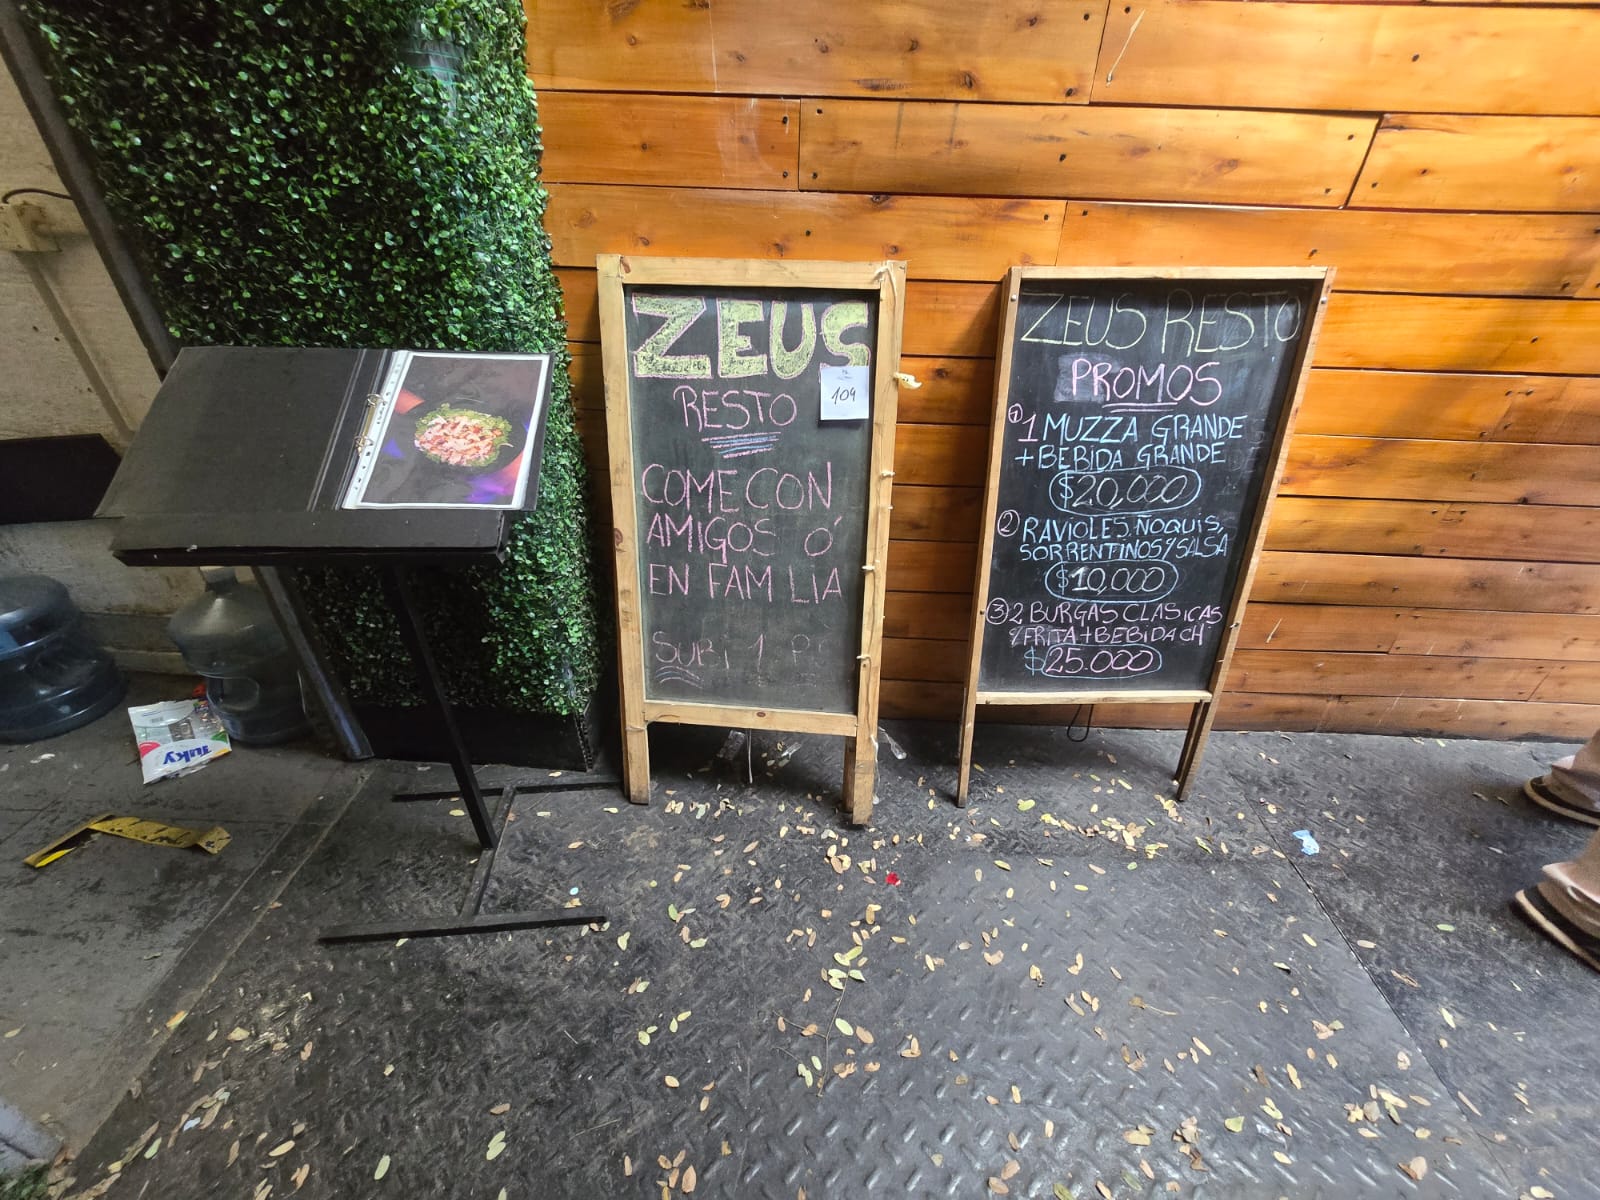 ZEUS
RESTO
109
COME CON
AMIGOS Ó
EN FAM LIA
SUBI 1
ZEUS RESTO
PROMOS
① 1 MUZZA GRANDE
+ BEBIDA GRANDE
$20,000
② RAVIOLES, ÑOQUIS,
SORRENTINOS Y SALSA
$10,000
③ 2 BURGAS CLASICAS
Y FRITA + BEBIDA CH
$25.000
Tuky